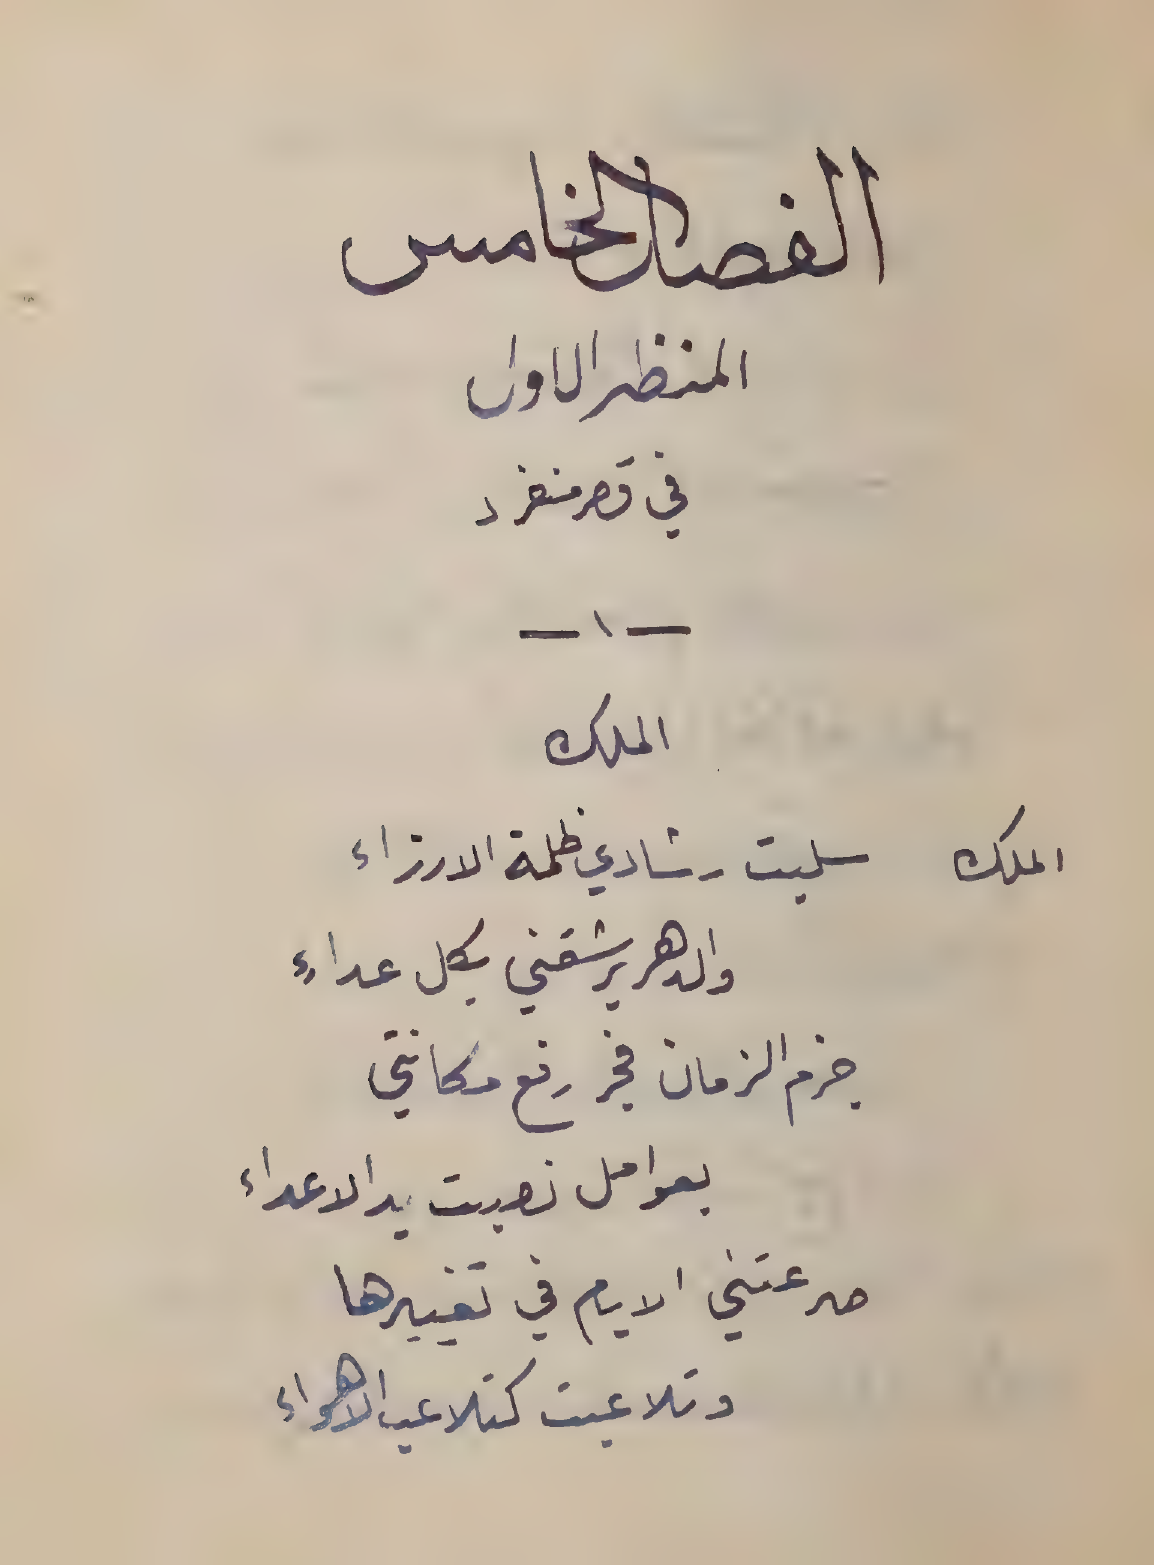 الفصل الخامس
المنظر الاول
في قصر منفرد
— ١ —
الملك
الملك سلبت رشادي ظلمة الارزاء
والدهر يرشقني بكل عداء
جزم الزمان فجر رفع مكانتي
بعوامل نصبت يد الاعداء
صرعتني الايام في تغييرها
وتلاعبت كتلاعب الاهواء